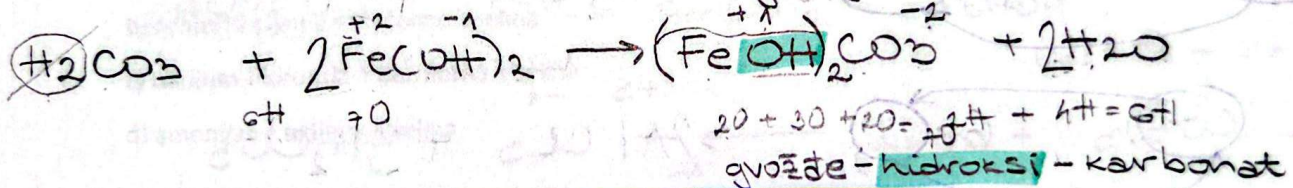 +2 -1 +1 -2
H2CO3 + 2Fe(OH)2 → (FeOH)2CO3 + 2H2O
6H 7O 2O + 3O + 2O = 7O 2H + 4H = 6H
gvožđe - hidroksi - karbonat